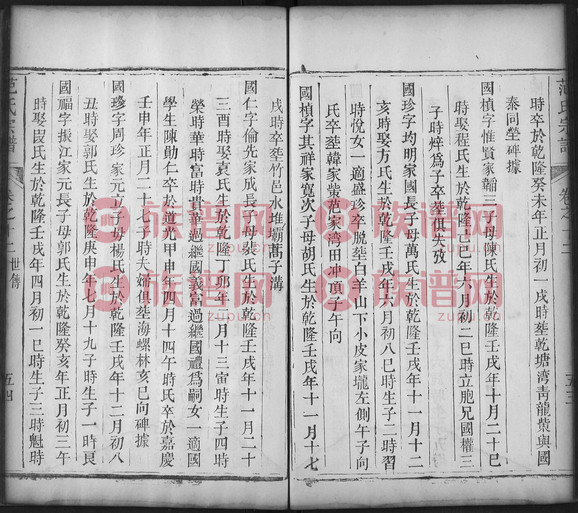 范氏宗譜
卷之十二
五三
時卒於乾隆癸未年正月初一戌時塟乾塘湾靑龍㘭與國
泰同瑩碑據
國楨字惟賢家輔三子母陳氏生於乾隆壬戌年十二月十巳
時娶程氏生於乾隆十巳年六月初二巳時立胞兄國權三
子時焠爲子卒塟俱失攷
國珍字均明家國長子母萬氏生於乾隆壬戌年十一月十二
時娶方氏生於乾隆壬戌年六月初八巳時生子二時習
時悅女一適盛珍卒脫塟白羊山下小皮家壠左側午子向
氏卒塟韓家㘭范家湾田冲頂子午向
國楨字其祥家寬次子母胡氏生於乾隆壬戌年十一月十七
戌時卒塟竹邑水堆壩蒿子溝
國仁字倫先家成長子母裴氏生於乾隆壬戌年十一月二十
三酉時娶袁氏生於乾隆丁卯年二月十三寅時生子四時
榮時華時富時貴華過繼國義富過繼國禮爲嗣女一適國
學生陳勛仁卒於道光甲申年四月十四午時氏卒於嘉慶
壬申年正月二十七子時夫婦俱塟海螺林亥巳向碑據
國瑧字周珍家元次子母楊氏生於乾隆壬戌年十二月初八
丑時娶郭氏生於乾隆庚申年七月十九子時生子一時良
國福字振江家元長子母郭氏生於乾隆癸亥年正月初三午
時娶段氏生於乾隆壬戌年四月初一巳時生子三時魁時
范氏宗譜
卷之十二 世傳
五四
族谱网
族谱网